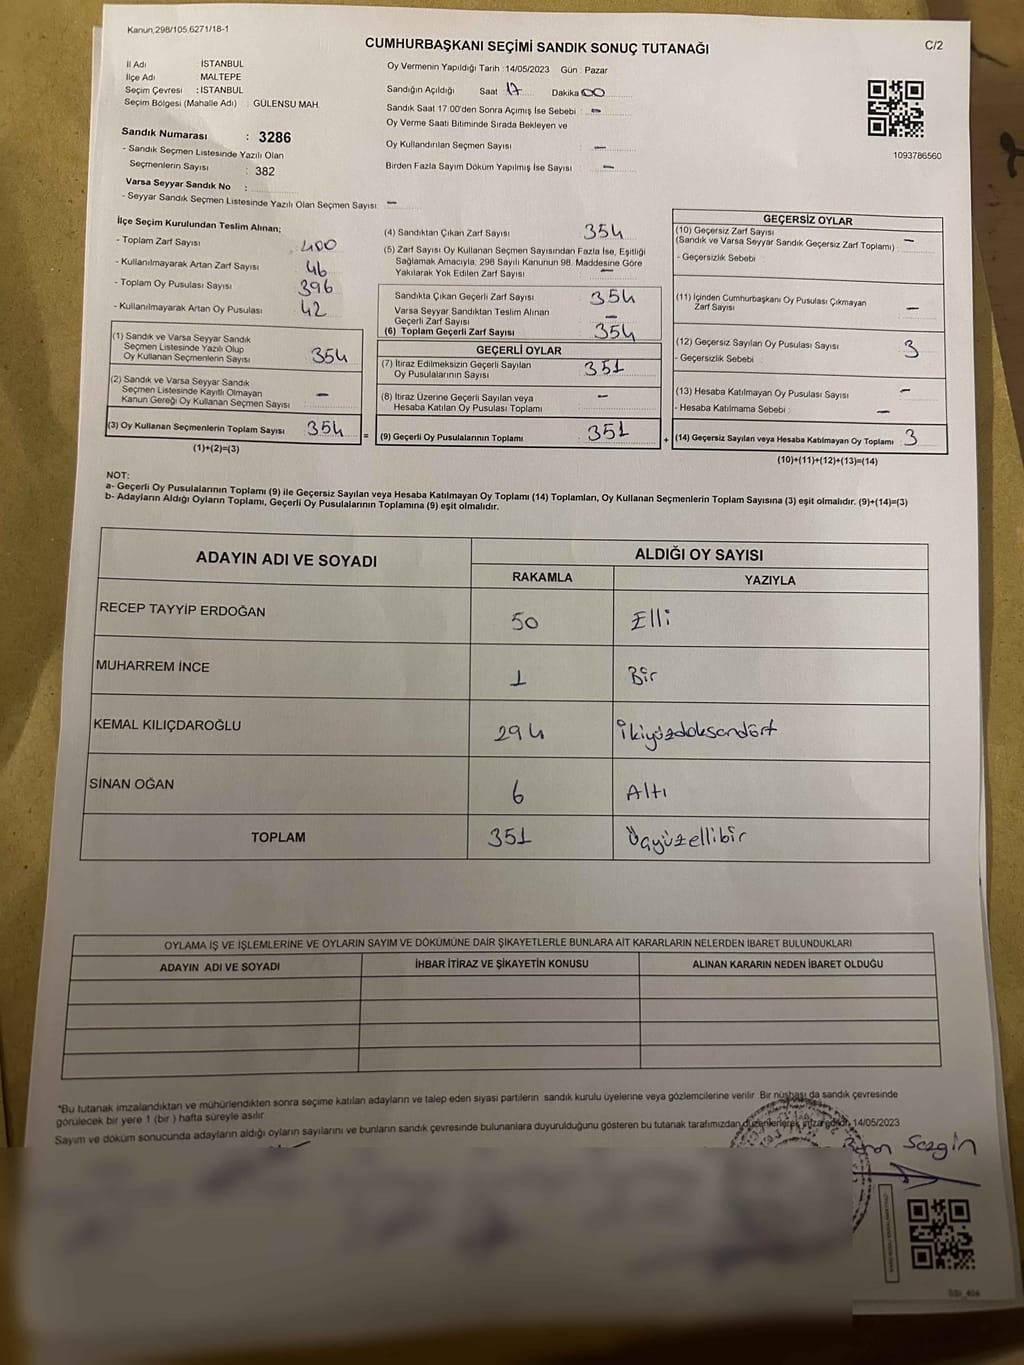 Kanun,298/105,6271/18-1
CUMHURBAŞKANI SEÇİMİ SANDIK SONUÇ TUTANAĞI
C/2
İl Adı İSTANBUL
İlçe Adı MALTEPE
Seçim Çevresi : İSTANBUL
Seçim Bölgesi (Mahalle Adı) GÜLENSU MAH
Oy Vermenin Yapıldığı Tarih :14/05/2023 Gün : Pazar
Sandığın Açıldığı Saat 17 Dakika 00
Sandık Saat 17:00'den Sonra Açılmış İse Sebebi : -
Oy Verme Saati Bitiminde Sırada Bekleyen ve
Oy Kullandırılan Seçmen Sayısı -
Birden Fazla Sayım Döküm Yapılmış İse Sayısı -
1093786560
Sandık Numarası : 3286
- Sandık Seçmen Listesinde Yazılı Olan
Seçmenlerin Sayısı : 382
Varsa Seyyar Sandık No :
- Seyyar Sandık Seçmen Listesinde Yazılı Olan Seçmen Sayısı: -
İlçe Seçim Kurulundan Teslim Alınan;
- Toplam Zarf Sayısı 400
- Kullanılmayarak Artan Zarf Sayısı 46
- Toplam Oy Pusulası Sayısı 396
- Kullanılmayarak Artan Oy Pusulası 42
(1) Sandık ve Varsa Seyyar Sandık
Seçmen Listesinde Yazılı Olup
Oy Kullanan Seçmenlerin Sayısı 354
(2) Sandık ve Varsa Seyyar Sandık
Seçmen Listesinde Kayıtlı Olmayan
Kanun Gereği Oy Kullanan Seçmen Sayısı -
(3) Oy Kullanan Seçmenlerin Toplam Sayısı 354
(1)+(2)=(3)
=
(4) Sandıktan Çıkan Zarf Sayısı 354
(5) Zarf Sayısı Oy Kullanan Seçmen Sayısından Fazla İse, Eşitliği
Sağlamak Amacıyla, 298 Sayılı Kanunun 98. Maddesine Göre
Yakılarak Yok Edilen Zarf Sayısı -
Sandıkta Çıkan Geçerli Zarf Sayısı 354
Varsa Seyyar Sandıktan Teslim Alınan
Geçerli Zarf Sayısı -
(6) Toplam Geçerli Zarf Sayısı 354
GEÇERLİ OYLAR
(7) İtiraz Edilmeksizin Geçerli Sayılan
Oy Pusulalarının Sayısı 351
(8) İtiraz Üzerine Geçerli Sayılan veya
Hesaba Katılan Oy Pusulası Toplamı -
(9) Geçerli Oy Pusulalarının Toplamı 351
+
GEÇERSİZ OYLAR
(10) Geçersiz Zarf Sayısı
(Sandık ve Varsa Seyyar Sandık Geçersiz Zarf Toplamı) -
- Geçersizlik Sebebi :
(11) İçinden Cumhurbaşkanı Oy Pusulası Çıkmayan
Zarf Sayısı -
(12) Geçersiz Sayılan Oy Pusulası Sayısı 3
- Geçersizlik Sebebi :
(13) Hesaba Katılmayan Oy Pusulası Sayısı -
- Hesaba Katılmama Sebebi : -
(14) Geçersiz Sayılan veya Hesaba Katılmayan Oy Toplamı 3
(10)+(11)+(12)+(13)=(14)
NOT:
a- Geçerli Oy Pusulalarının Toplamı (9) ile Geçersiz Sayılan veya Hesaba Katılmayan Oy Toplamı (14) Toplamları, Oy Kullanan Seçmenlerin Toplam Sayısına (3) eşit olmalıdır. (9)+(14)=(3)
b- Adayların Aldığı Oyların Toplamı, Geçerli Oy Pusulalarının Toplamına (9) eşit olmalıdır.
ADAYIN ADI VE SOYADI ALDIĞI OY SAYISI
RAKAMLA YAZIYLA
RECEP TAYYİP ERDOĞAN 50 Elli
MUHARREM İNCE 1 Bir
KEMAL KILIÇDAROĞLU 294 ikiyüzdoksandört
SİNAN OĞAN 6 Altı
TOPLAM 351 Üçyüzellibir
OYLAMA İŞ VE İŞLEMLERİNE VE OYLARIN SAYIM VE DÖKÜMÜNE DAİR ŞİKAYETLERLE BUNLARA AİT KARARLARIN NELERDEN İBARET BULUNDUKLARI
ADAYIN ADI VE SOYADI İHBAR İTİRAZ VE ŞİKAYETİN KONUSU ALINAN KARARIN NEDEN İBARET OLDUĞU
*Bu tutanak imzalandıktan ve mühürlendikten sonra seçime katılan adayların ve talep eden siyasi partilerin sandık kurulu üyelerine veya gözlemcilerine verilir. Bir nüshası da sandık çevresinde
görülecek bir yere 1 (bir ) hafta süreyle asılır
Sayım ve döküm sonucunda adayların aldığı oyların sayılarını ve bunların sandık çevresinde bulunanlara duyurulduğunu gösteren bu tutanak tarafımızdan düzenlenerek imza edildi. 14/05/2023
Sezgin